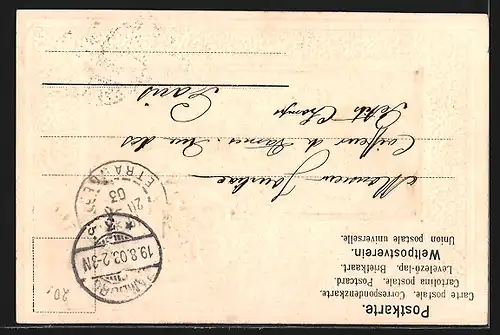 Postkarte.
Carte postale. Correspondenzkarte.
Cartolina postale. Postcard.
Levelező-lap. Briefkaart.
Weltpostverein.
Union postale universelle.
Monsieur
Coiffeur de Dames. Rue des
Petits Champs
Paris
ETRANGER
03
19.8.03.2-3N
20.